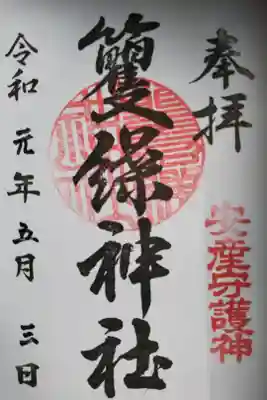 奉拝
安産守護神
籰繰神社
令和元年五月三日